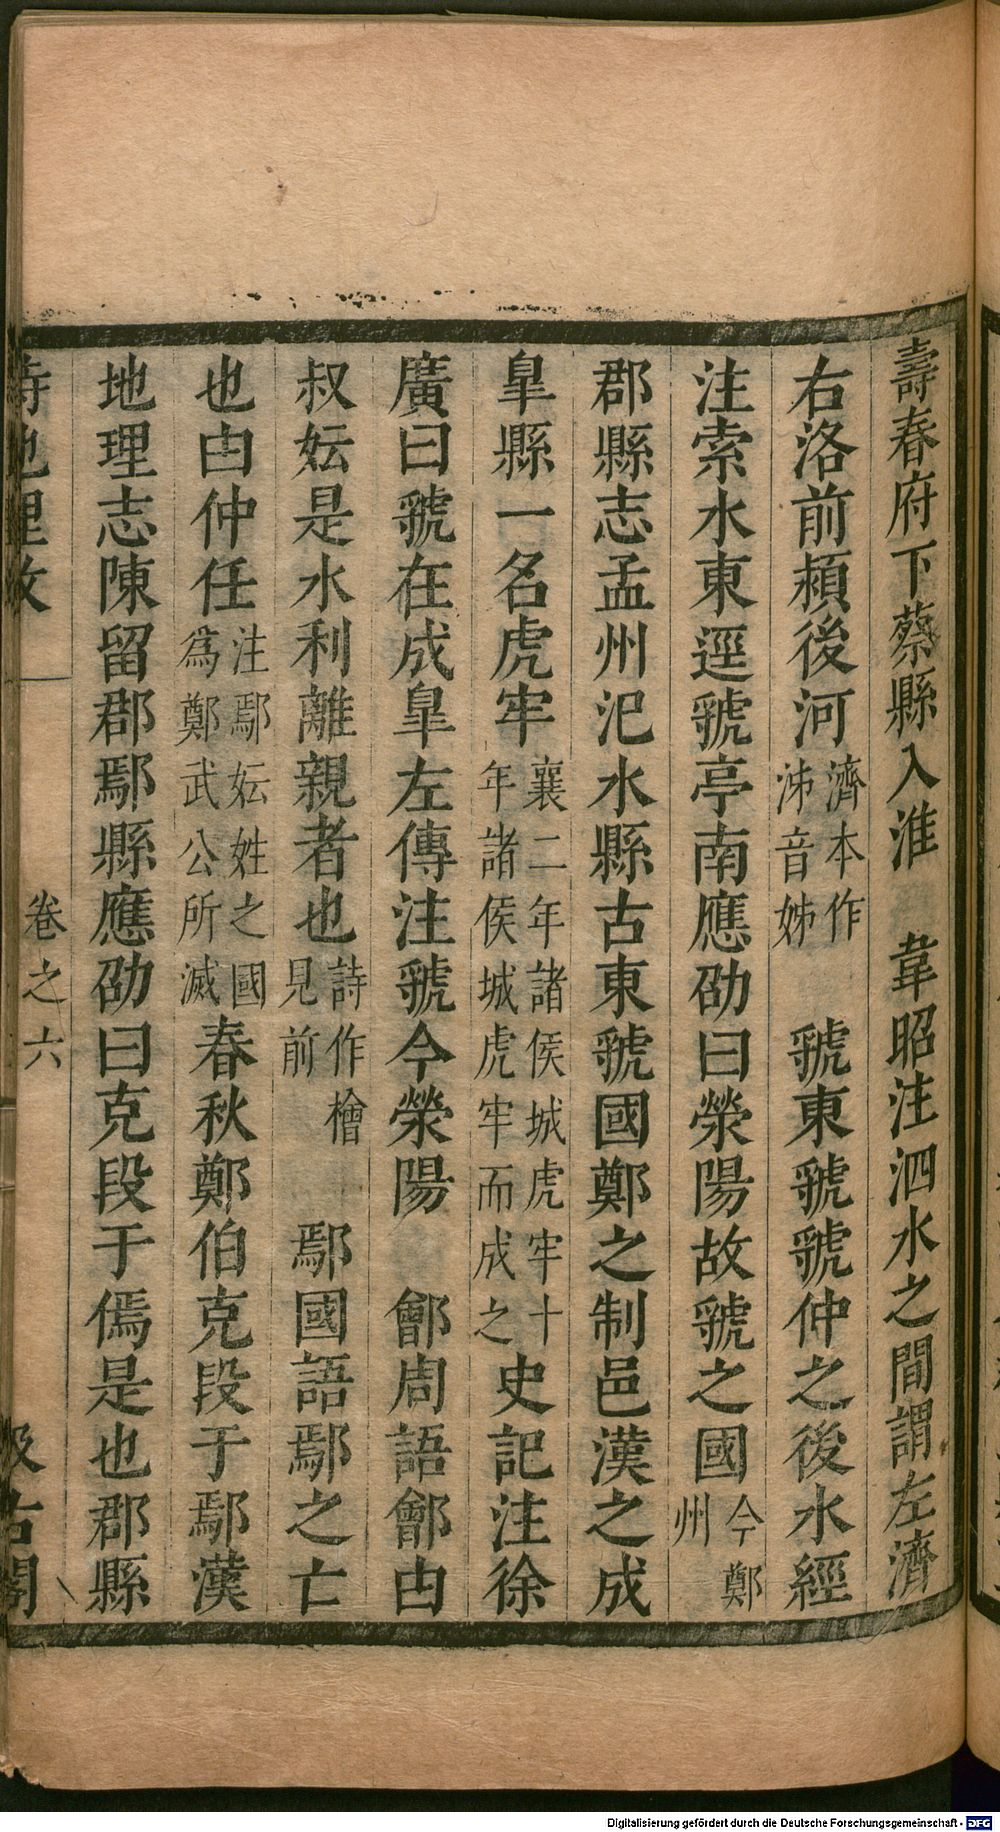 壽春府下蔡縣入淮　韋昭注洄水之間謂左濟
右洛前潁後河濟本作泲音姊　虢東虢虢仲之後水經
注索水東逕虢亭南應劭曰滎陽故虢之國今鄭州
郡縣志孟州汜水縣古東虢國鄭之制邑漢之成
皐縣一名虎牢襄二年諸侯城虎牢十年諸侯城虎牢而戍之史記注徐
廣曰虢在成皐左傳注虢今滎陽　鄶周語鄶由
叔妘是水利離親者也詩作檜見前　鄢國語鄢之亡
也由仲任注鄢妘姓之國為鄭武公所滅春秋鄭伯克段于鄢漢
地理志陳留郡鄢縣應劭曰克段于傿是也郡縣
詩地理攷　卷之六　汲古閣
Digitalisierung gefördert durch die Deutsche Forschungsgemeinschaft - DFG